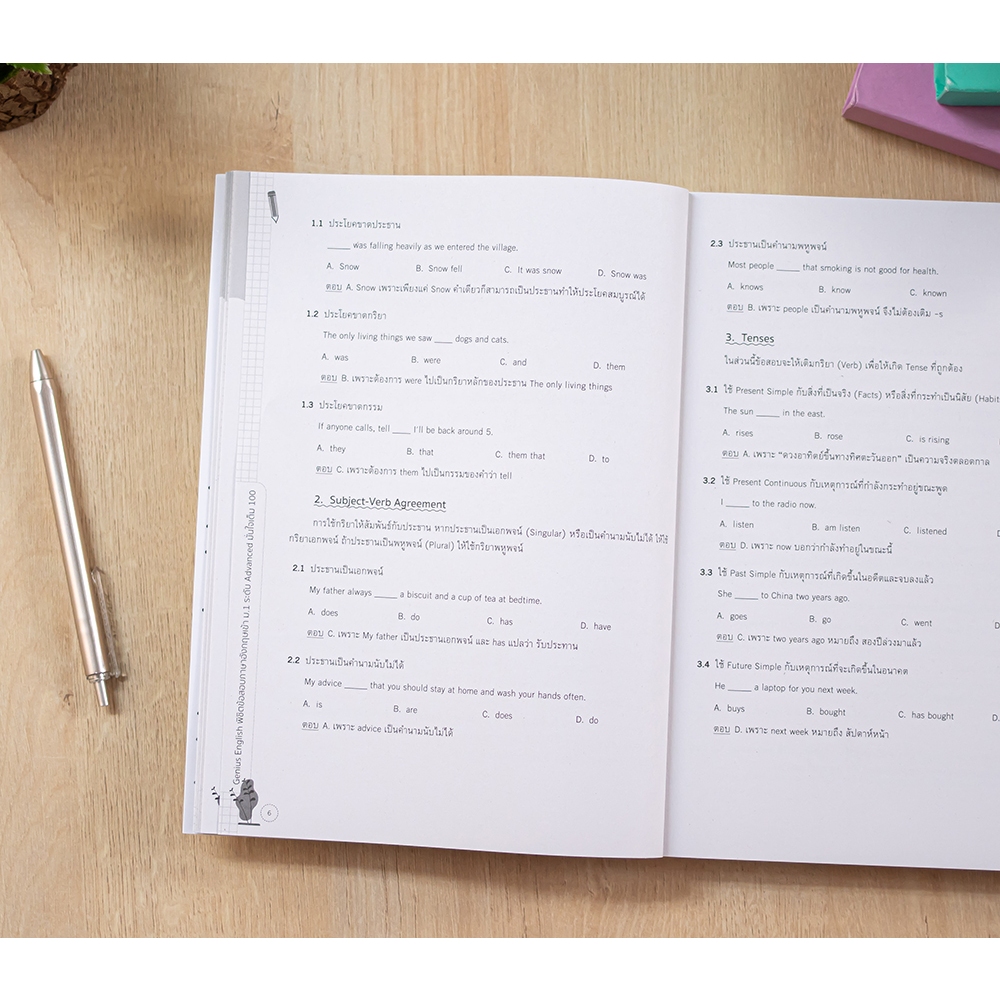 1.1 ประโยคขาดประธาน
_____ was falling heavily as we entered the village.
A. Snow B. Snow fell C. It was snow D. Snow was
ตอบ A. Snow เพราะเพียงแค่ Snow คำเดียวก็สามารถเป็นประธานทำให้ประโยคสมบูรณ์ได้
1.2 ประโยคขาดกริยา
The only living things we saw ____ dogs and cats.
A. was B. were C. and D. them
ตอบ B. เพราะต้องการ were ไปเป็นกริยาหลักของประธาน The only living things
1.3 ประโยคขาดกรรม
If anyone calls, tell ____ I'll be back around 5.
A. they B. that C. them that D. to
ตอบ C. เพราะต้องการ them ไปเป็นกรรมของคำว่า tell
2. Subject-Verb Agreement
การใช้กริยาให้สัมพันธ์กับประธาน หากประธานเป็นเอกพจน์ (Singular) หรือเป็นคำนามนับไม่ได้ ให้ใช้
กริยาเอกพจน์ ถ้าประธานเป็นพหูพจน์ (Plural) ให้ใช้กริยาพหูพจน์
2.1 ประธานเป็นเอกพจน์
My father always _____ a biscuit and a cup of tea at bedtime.
A. does B. do C. has D. have
ตอบ C. เพราะ My father เป็นประธานเอกพจน์ และ has แปลว่า รับประทาน
2.2 ประธานเป็นคำนามนับไม่ได้
My advice _____ that you should stay at home and wash your hands often.
A. is B. are C. does D. do
ตอบ A. เพราะ advice เป็นคำนามนับไม่ได้
Genius English พิชิตข้อสอบภาษาอังกฤษเข้า ม.1 ระดับ Advanced มั่นใจเต็ม 100
6
2.3 ประธานเป็นคำนามพหูพจน์
Most people _____ that smoking is not good for health.
A. knows B. know C. known
ตอบ B. เพราะ people เป็นคำนามพหูพจน์ จึงไม่ต้องเติม -s
3. Tenses
ในส่วนนี้ข้อสอบจะให้เติมกริยา (Verb) เพื่อให้เกิด Tense ที่ถูกต้อง
3.1 ใช้ Present Simple กับสิ่งที่เป็นจริง (Facts) หรือสิ่งที่กระทำเป็นนิสัย (Habit
The sun _____ in the east.
A. rises B. rose C. is rising
ตอบ A. เพราะ "ดวงอาทิตย์ขึ้นทางทิศตะวันออก" เป็นความจริงตลอดกาล
3.2 ใช้ Present Continuous กับเหตุการณ์ที่กำลังกระทำอยู่ขณะพูด
I _____ to the radio now.
A. listen B. am listen C. listened
ตอบ D. เพราะ now บอกว่ากำลังทำอยู่ในขณะนี้
3.3 ใช้ Past Simple กับเหตุการณ์ที่เกิดขึ้นในอดีตและจบลงแล้ว
She _____ to China two years ago.
A. goes B. go C. went D
ตอบ C. เพราะ two years ago หมายถึง สองปีล่วงมาแล้ว
3.4 ใช้ Future Simple กับเหตุการณ์ที่จะเกิดขึ้นในอนาคต
He _____ a laptop for you next week.
A. buys B. bought C. has bought D.
ตอบ D. เพราะ next week หมายถึง สัปดาห์หน้า